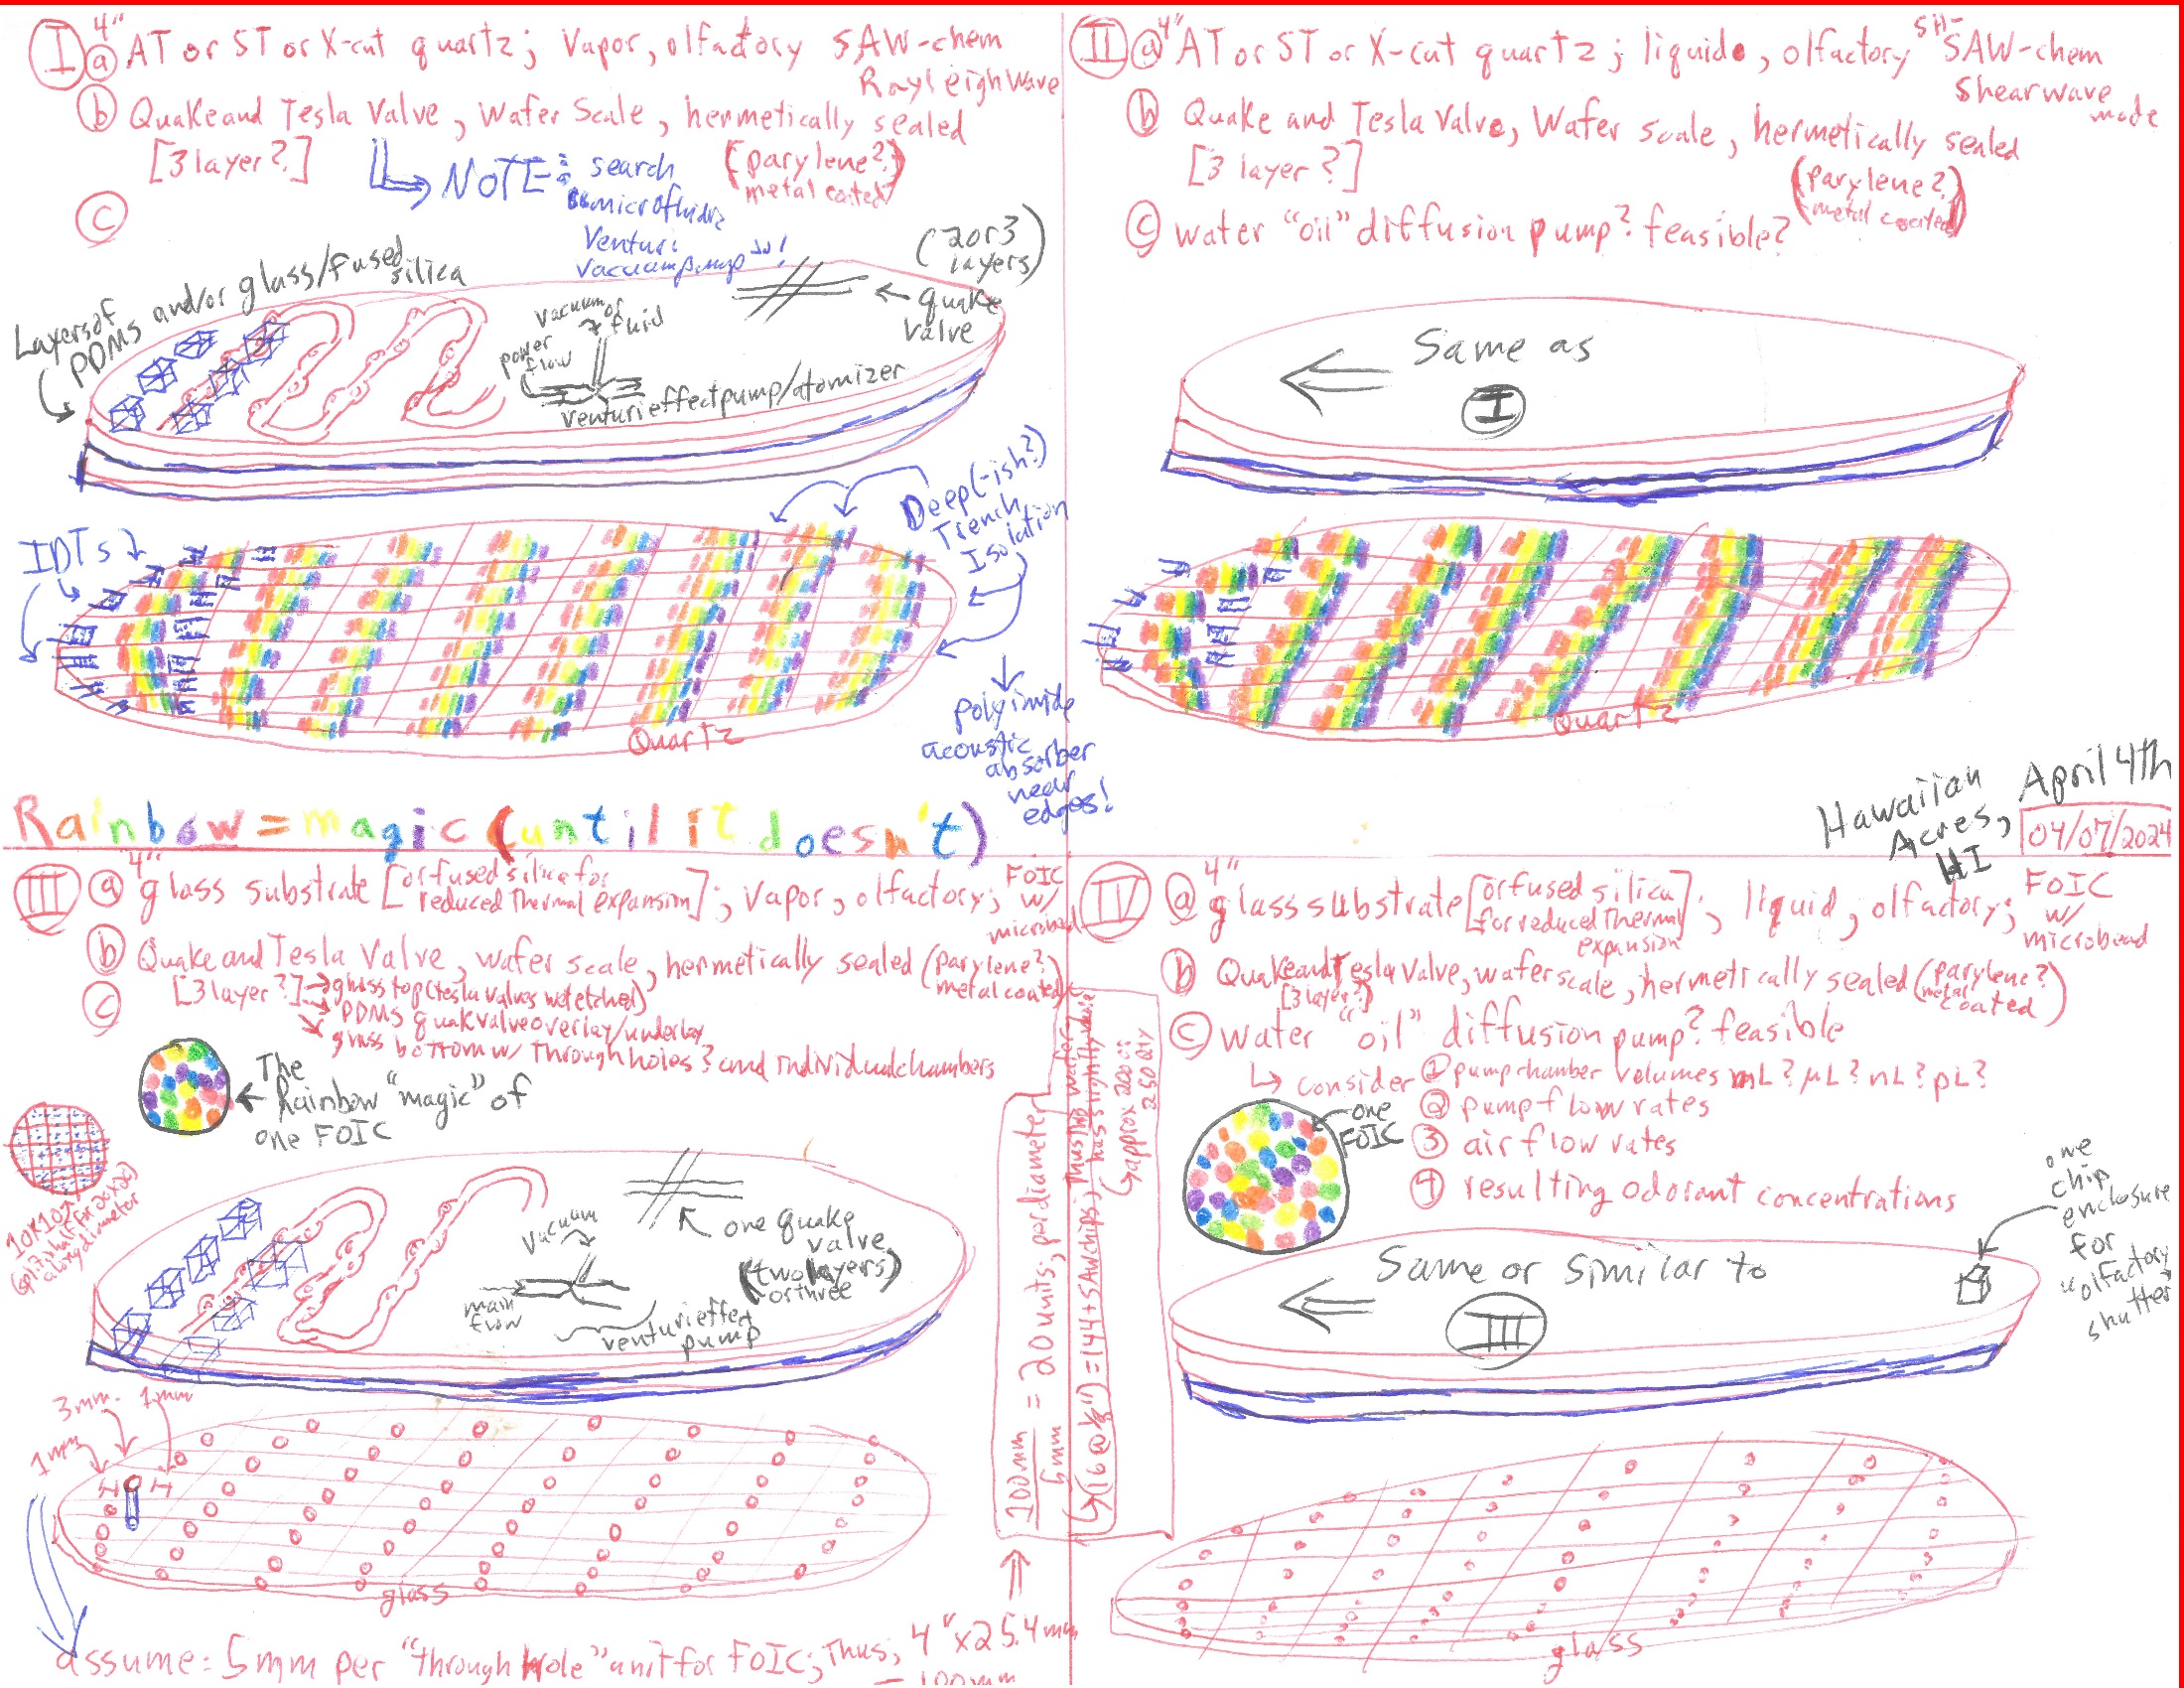 I 4"
a AT or ST or X-cut quartz; Vapor, olfactory SAW-chem
Rayleigh Wave
b Quake and Tesla Valve, Wafer Scale, hermetically sealed
[3 layer?]
(parylene?)
metal coated
NOTE: search
microfluidic
Venturi
vacuum pump !
c
Layers of
PDMS and/or glass/fused
silica
vacuum or
fluid
power
flow
venturi effect pump/atomizer
(2 or 3
layers)
quake
valve
IDTs
Deep(-ish?)
Trench
Isolation
polyimide
acoustic
absorber
near
edges!
Quartz
Rainbow = magic (until it doesn't)
II 4"
a AT or ST or X-cut quartz; liquid, olfactory SH-SAW-chem
Shear wave
mode
b Quake and Tesla Valve, Wafer scale, hermetically sealed
[3 layer?]
(parylene?)
metal coated
c water "oil" diffusion pump? feasible?
Same as
I
Quartz
Hawaiian
Acres,
HI
April 4th
04/07/2024
III 4"
a glass substrate [or fused silica for
reduced thermal expansion]; vapor, olfactory; FOIC
w/
microbead
b Quake and Tesla Valve, wafer scale, hermetically sealed (parylene?)
metal coated
[3 layer?] → glass top (tesla valves wet etched)
→ PDMS quak valve overlay/underlay
glass bottom w/ through holes? and individual chambers
c
The
Rainbow "magic" of
one FOIC
10x10
(split in half for 20x20)
along diameter
vacuum
main
flow
venturi effect
pump
one quake
valve
(two layers)
or three
3mm
1mm
1mm
glass
assume: 5mm per "through hole" unit for FOIC; Thus; 4"x25.4mm
= 100mm
100mm
5mm
= 20 units, per diameter
(16@¼") = 144+ SAW chips, thus
approx 200 or
250 qty
IV 4"
a glass substrate [or fused silica
for reduced thermal
expansion]; liquid, olfactory; FOIC
w/
microbead
b Quake and Tesla Valve, wafer scale, hermetically sealed (parylene?)
metal coated
[3 layer?]
c water "oil" diffusion pump? feasible
↳ consider ① pump chamber volumes mL? μL? nL? pL?
② pump flow rates
③ air flow rates
④ resulting odorant concentrations
one
FOIC
one
chip
enclosure
for
olfactory
shutter
Same or similar to
III
glass